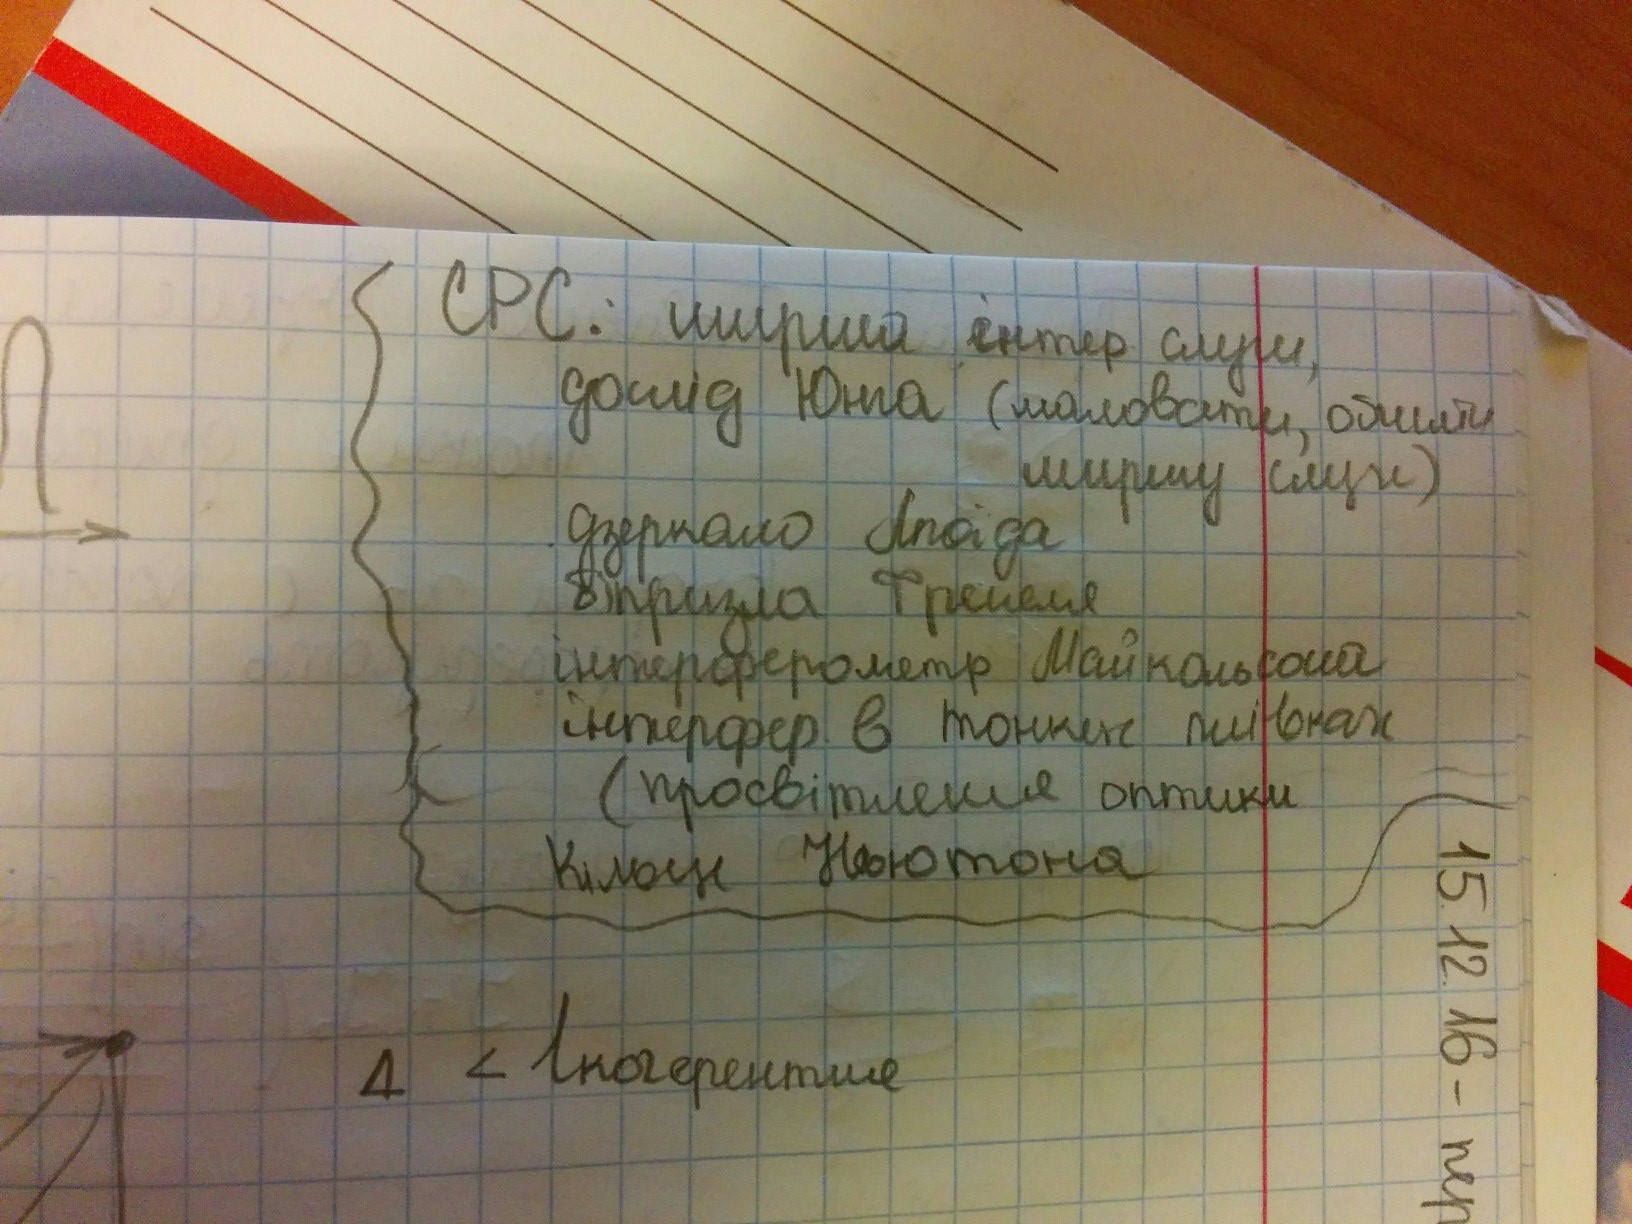 СРС: ширина інтер смуги,
дослід Юнга (малювати, обчислити
ширину смуги)
дзеркало Ллойда
біпризма Френеля
інтерферометр Майкельсона
інтерфер в тонких плівках
(просвітлення оптики
Кільця Ньютона
Δ < lкогерентне
15.12.16 - пер